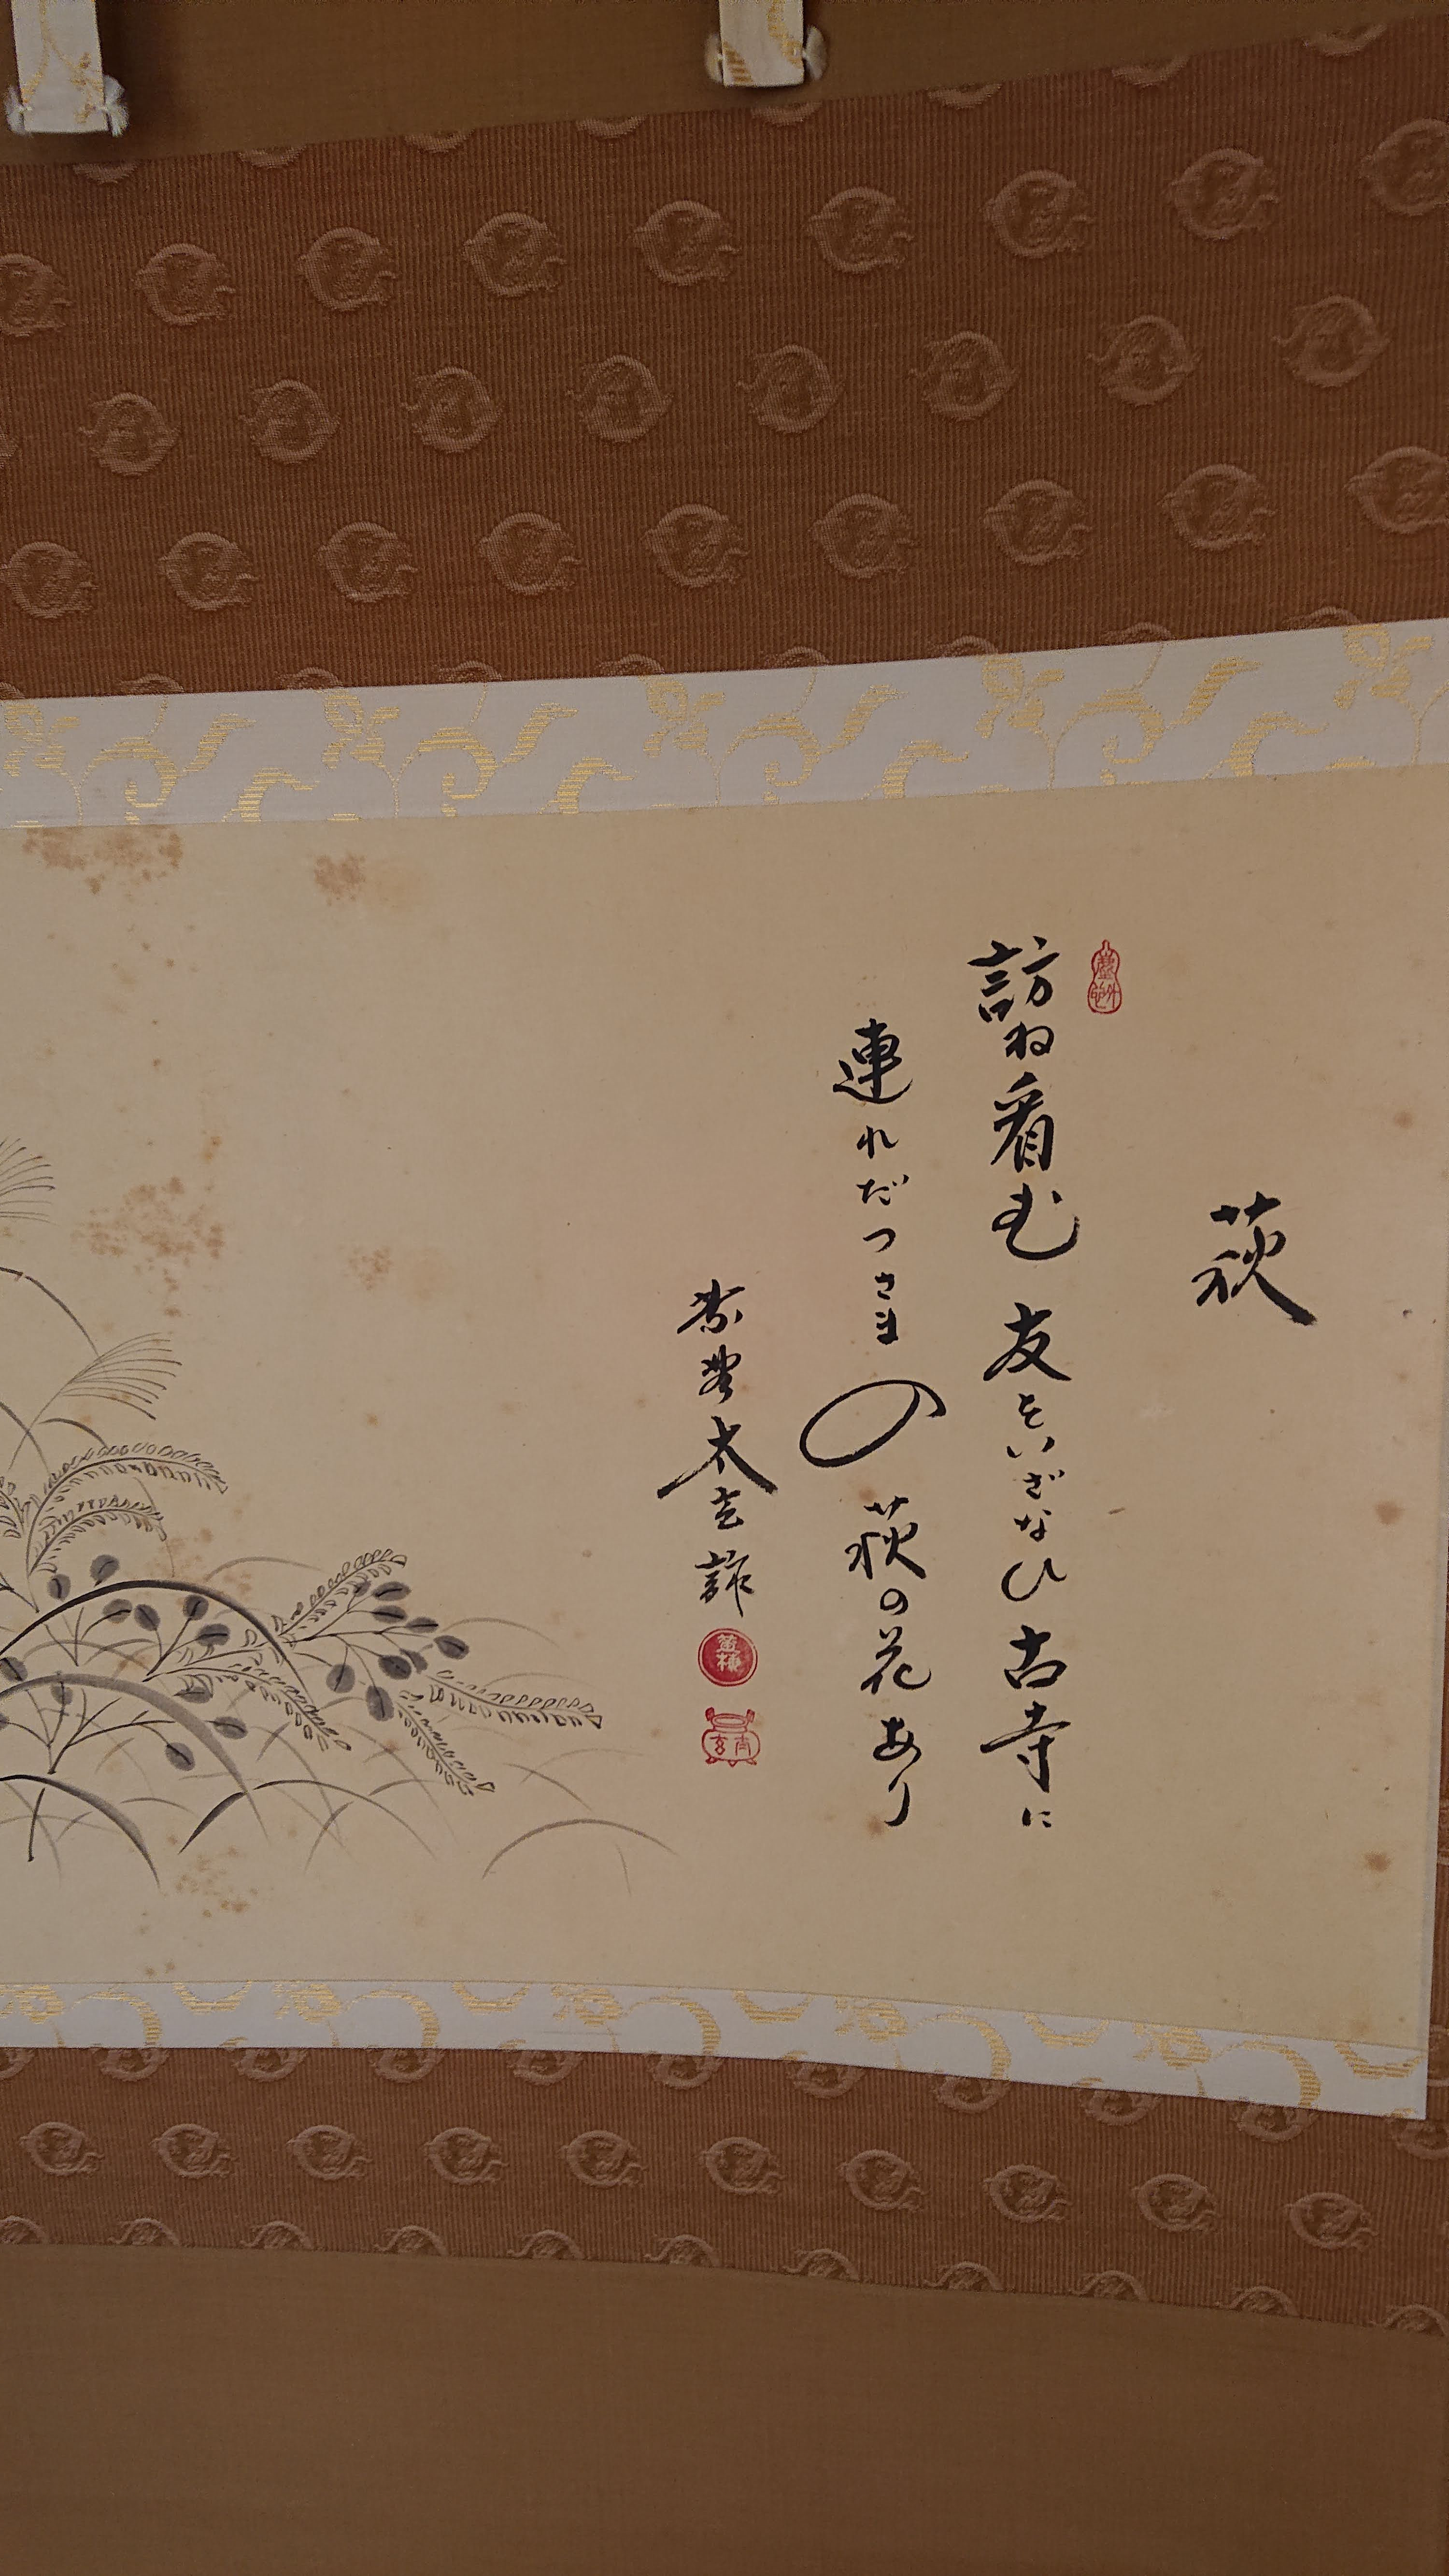 萩
訪ね看む 友をいざなひ 古寺に
連れだつさまの 萩の花あり
太玄 詠